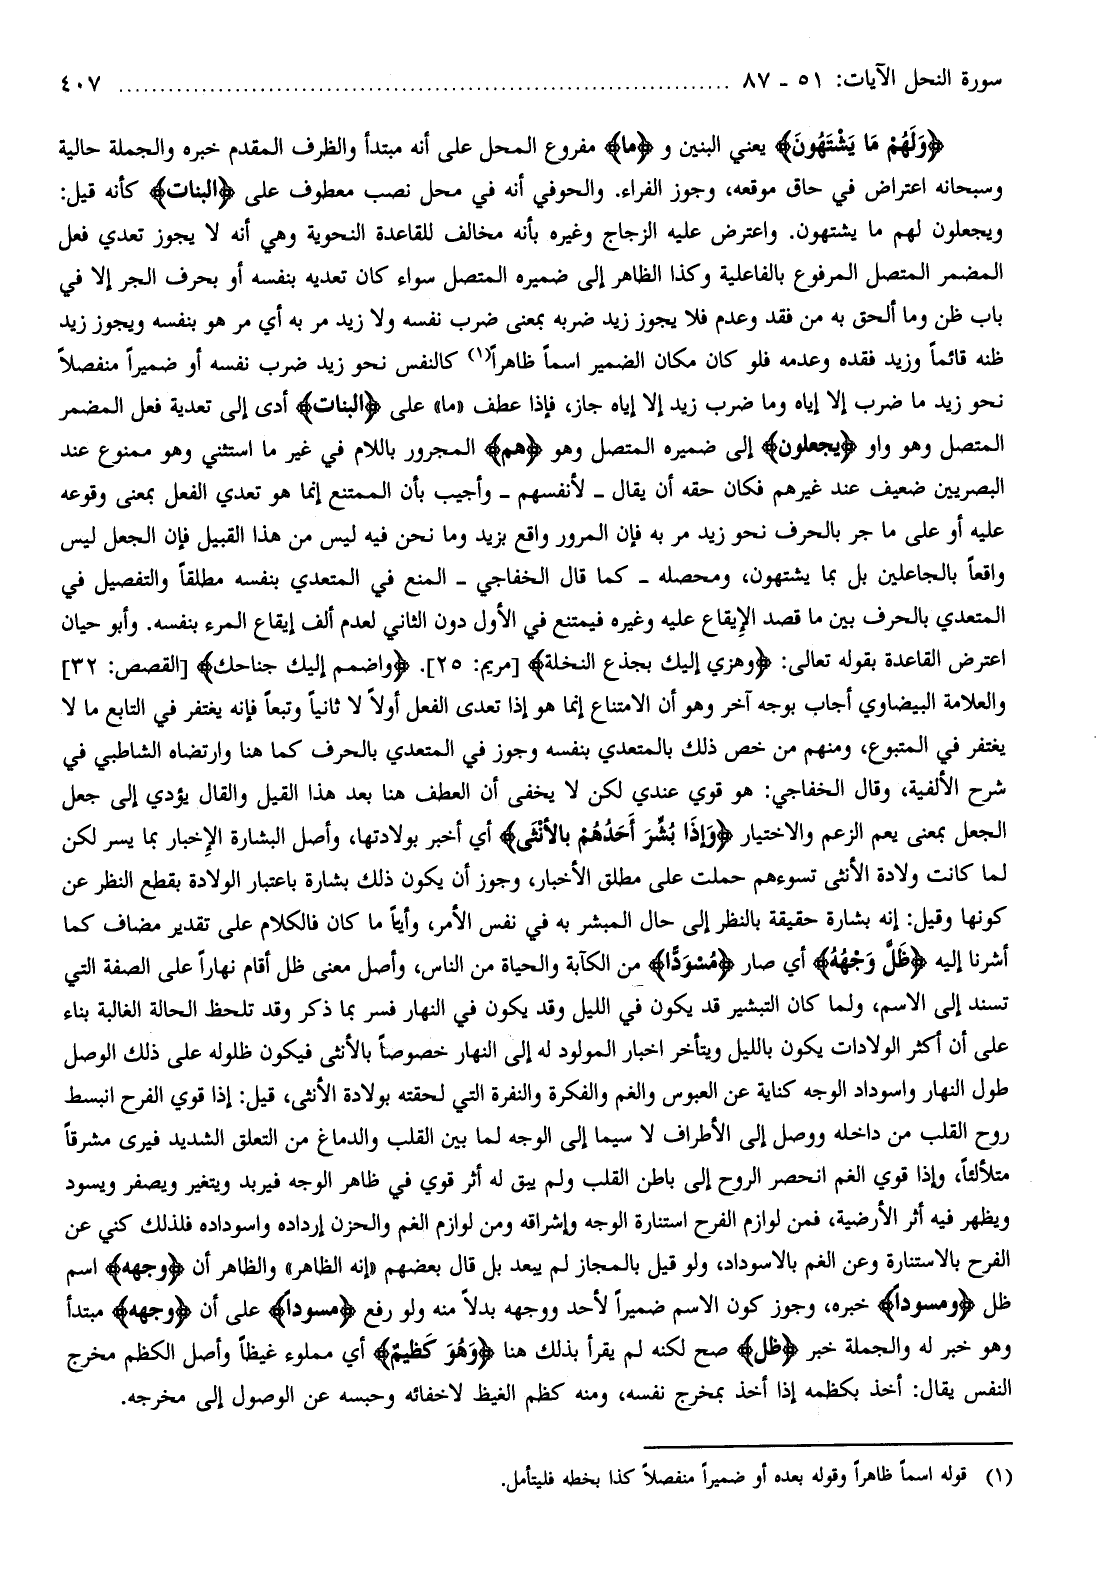 سورة النحل الآيات: ٥١ - ٨٧ ........................................................................ ٤٠٧
﴿وَلَهُمْ مَا يَشْتَهُونَ﴾ يعني البنين و ﴿ما﴾ مفروع المحل على أنه مبتدأ والظرف المقدم خبره والجملة حالية
وسبحانه اعتراض في حاق موقعه، وجوز الفراء. والحوفي أنه في محل نصب معطوف على ﴿البنات﴾ كأنه قيل:
ويجعلون لهم ما يشتهون. واعترض عليه الزجاج وغيره بأنه مخالف للقاعدة النحوية وهي أنه لا يجوز تعدي فعل
المضمر المتصل المرفوع بالفاعلية وكذا الظاهر إلى ضميره المتصل سواء كان تعديه بنفسه أو بحرف الجر إلا في
باب ظن وما ألحق به من فقد وعدم فلا يجوز زيد ضربه بمعنى ضرب نفسه ولا زيد مر به أي مر هو بنفسه ويجوز زيد
ظنه قائماً وزيد فقده وعدمه فلو كان مكان الضمير اسماً ظاهراً(١) كالنفس نحو زيد ضرب نفسه أو ضميراً منفصلاً
نحو زيد ما ضرب إلا إياه وما ضرب زيد إلا إياه جاز، فإذا عطف «ما» على ﴿البنات﴾ أدى إلى تعدية فعل المضمر
المتصل وهو واو ﴿يجعلون﴾ إلى ضميره المتصل وهو ﴿هم﴾ المجرور باللام في غير ما استثني وهو ممنوع عند
البصريين ضعيف عند غيرهم فكان حقه أن يقال ـ لأنفسهم ـ وأجيب بأن الممتنع إنما هو تعدي الفعل بمعنى وقوعه
عليه أو على ما جر بالحرف نحو زيد مر به فإن المرور واقع بزيد وما نحن فيه ليس من هذا القبيل فإن الجعل ليس
واقعاً بالجاعلين بل بما يشتهون، ومحصله ـ كما قال الخفاجي ـ المنع في المتعدي بنفسه مطلقاً والتفصيل في
المتعدي بالحرف بين ما قصد الإيقاع عليه وغيره فيمتنع في الأول دون الثاني لعدم ألف إيقاع المرء بنفسه. وأبو حيان
اعترض القاعدة بقوله تعالى: ﴿وهزي إليك بجذع النخلة﴾ [مريم: ٢٥]. ﴿واضمم إليك جناحك﴾ [القصص: ٣٢]
والعلامة البيضاوي أجاب بوجه آخر وهو أن الامتناع إنما هو إذا تعدى الفعل أولاً لا ثانياً وتبعاً فإنه يغتفر في التابع ما لا
يغتفر في المتبوع، ومنهم من خص ذلك بالمتعدي بنفسه وجوز في المتعدي بالحرف كما هنا وارتضاه الشاطبي في
شرح الألفية، وقال الخفاجي: هو قوي عندي لكن لا يخفى أن العطف هنا بعد هذا القيل والقال يؤدي إلى جعل
الجعل بمعنى يعم الزعم والاختيار ﴿وَإِذَا بُشِّرَ أَحَدُهُمْ بالأُنْثَى﴾ أي أخبر بولادتها، وأصل البشارة الإخبار بما يسر لكن
لما كانت ولادة الأنثى تسوءهم حملت على مطلق الأخبار، وجوز أن يكون ذلك بشارة باعتبار الولادة بقطع النظر عن
كونها وقيل: إنه بشارة حقيقة بالنظر إلى حال المبشر به في نفس الأمر، وأياً ما كان فالكلام على تقدير مضاف كما
أشرنا إليه ﴿ظَلَّ وَجْهُهُ﴾ أي صار ﴿مُسْوَدًّا﴾ من الكآبة والحياة من الناس، وأصل معنى ظل أقام نهاراً على الصفة التي
تسند إلى الاسم، ولما كان التبشير قد يكون في الليل وقد يكون في النهار فسر بما ذكر وقد تلحظ الحالة الغالبة بناء
على أن أكثر الولادات يكون بالليل ويتأخر اخبار المولود له إلى النهار خصوصاً بالأنثى فيكون ظلوله على ذلك الوصل
طول النهار واسوداد الوجه كناية عن العبوس والغم والفكرة والنفرة التي لحقته بولادة الأنثى، قيل: إذا قوي الفرح انبسط
روح القلب من داخله ووصل إلى الأطراف لا سيما إلى الوجه لما بين القلب والدماغ من التعلق الشديد فيرى مشرقاً
متلألئاً، وإذا قوي الغم انحصر الروح إلى باطن القلب ولم يبق له أثر قوي في ظاهر الوجه فيربد ويتغير ويصفر ويسود
ويظهر فيه أثر الأرضية، فمن لوازم الفرح استنارة الوجه وإشراقه ومن لوازم الغم والحزن إرداده واسوداده فلذلك كني عن
الفرح بالاستنارة وعن الغم بالاسوداد، ولو قيل بالمجاز لم يبعد بل قال بعضهم «إنه الظاهر» والظاهر أن ﴿وجهه﴾ اسم
ظل ﴿ومسوداً﴾ خبره، وجوز كون الاسم ضميراً لأحد ووجهه بدلاً منه ولو رفع ﴿مسوداً﴾ على أن ﴿وجهه﴾ مبتدأ
وهو خبر له والجملة خبر ﴿ظل﴾ صح لكنه لم يقرأ بذلك هنا ﴿وَهُوَ كَظِيمٌ﴾ أي مملوء غيظاً وأصل الكظم مخرج
النفس يقال: أخذ بكظمه إذا أخذ بمخرج نفسه، ومنه كظم الغيظ لاخفائه وحبسه عن الوصول إلى مخرجه.
(١) قوله اسماً ظاهراً وقوله بعده أو ضميراً منفصلاً كذا بخطه فليتأمل.